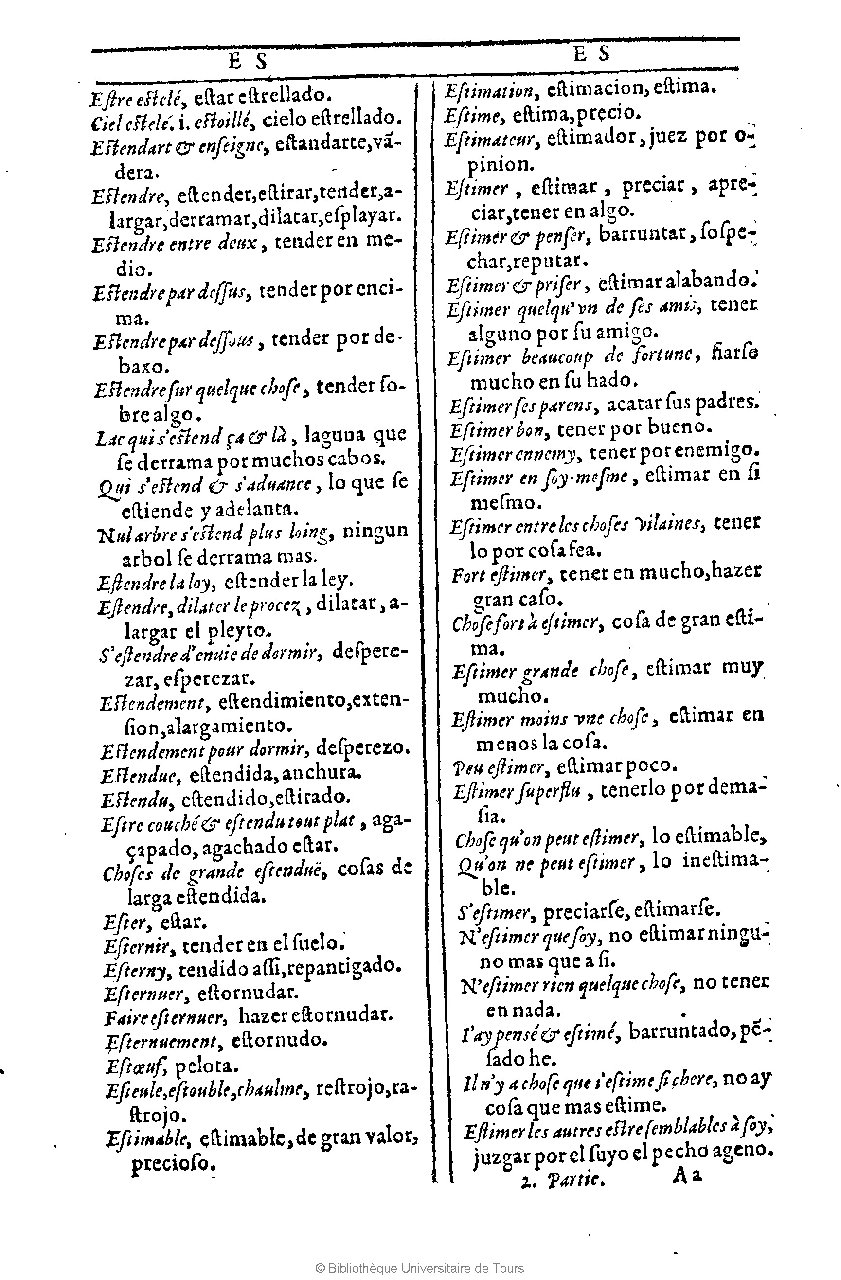 E S
Eſtre eſtelé, eſtar eſtrellado.
Ciel eſtelé. i. eſtoillé, cielo eſtrellado.
Eſtendart & enſeigne, eſtandarte, vã-
dera.
Eſtendre, eſtender, eſtirar, tender, a-
largar, derramar, dilatar, eſplayar.
Eſtendre entre deux, tender en me-
dio.
Eſtendre par deſſus, tender por enci-
ma.
Eſtendre par deſſous, tender por de-
baxo.
Eſtendre ſur quelque choſe, tender ſo-
bre algo.
Lac qui s'eſtend ça & là, laguna que
ſe derrama por muchos cabos.
Qui s'eſtend & s'aduance, lo que ſe
eſtiende y adelanta.
Nul arbre s'eſtend plus loing, ningun
arbol ſe derrama mas.
Eſtendre la loy, eſtender la ley.
Eſtendre, dilater le procez, dilatar, a-
largar el pleyto.
S'eſtendre d'enuie de dormir, deſpere-
zar, eſperezar.
Eſtendement, eſtendimiento, exten-
ſion, alargamiento.
Eſtendement pour dormir, deſperezo.
Eſtendue, eſtendida, anchura.
Eſtendu, eſtendido, eſtirado.
Eſtre couché & eſtendu tout plat, aga-
çapado, agachado eſtar.
Choſes de grande eſtenduë, coſas de
larga eſtendida.
Eſter, eſtar.
Eſternir, tender en el ſuelo.
Eſterny, tendido aſſi, repantigado.
Eſternuer, eſtornudar.
Faire eſternuer, hazer eſtornudar.
Eſternuement, eſtornudo.
Eſtœuf, pelota.
Eſteule, eſtouble, chaulme, reſtrojo, ra-
ſtrojo.
Eſtimable, eſtimable, de gran valor,
precioſo.
E S
Eſtimation, eſtimacion, eſtima.
Eſtime, eſtima, precio.
Eſtimateur, eſtimador, juez por o-
pinion.
Eſtimer, eſtimar, preciar, apre-
ciar, tener en algo.
Eſtimer & penſer, barruntar, ſoſpe-
char, reputar.
Eſtimer & priſer, eſtimar alabando.
Eſtimer quelqu'vn de ſes amis, tener
alguno por ſu amigo.
Eſtimer beaucoup de fortune, fiarſe
mucho en ſu hado.
Eſtimer ſes parens, acatar ſus padres.
Eſtimer bon, tener por bueno.
Eſtimer ennemy, tener por enemigo.
Eſtimer en ſoy-meſme, eſtimar en ſi
meſmo.
Eſtimer entre les choſes vilaines, tener
lo por coſa fea.
Fort eſtimer, tener en mucho, hazer
gran caſo.
Choſe fort à eſtimer, coſa de gran eſti-
ma.
Eſtimer grande choſe, eſtimar muy
mucho.
Eſtimer moins vne choſe, eſtimar en
menos la coſa.
Peu eſtimer, eſtimar poco.
Eſtimer ſuperflu, tenerlo por dema-
ſia.
Choſe qu'on peut eſtimer, lo eſtimable,
Qu'on ne peut eſtimer, lo ineſtima-
ble.
S'eſtimer, preciarſe, eſtimarſe.
N'eſtimer que ſoy, no eſtimar ningu-
no mas que a ſi.
N'eſtimer rien quelque choſe, no tener
en nada.
I'ay penſé & eſtimé, barruntado, pẽ-
ſado he.
Il n'y a choſe que i'eſtime ſi chere, no ay
coſa que mas eſtime.
Eſtimer les autres eſtre ſemblables à ſoy,
juzgar por el ſuyo el pecho ageno.
2. Partie. Aa
© Bibliothèque Universitaire de Tours